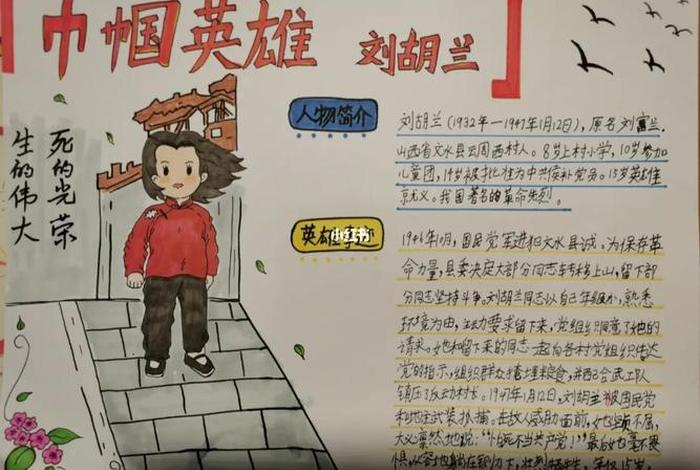 巾帼英雄 刘胡兰
生的伟大
死的光荣
人物简介
刘胡兰(1932年—1947年1月12日),原名刘富兰,
山西省文水县云周西村人。8岁上村小学,10岁参加
儿童团,14岁被批准为中共候补党员。15岁英雄
就义。我国著名的革命先烈。
英雄事迹
小红书
1946年10月,国民党军进犯文水县诚。为保存革
命力量,县委决定大部分同志转移上山,留下部
分同志坚持斗争。刘胡兰同志以自己年级小,熟悉
环境为由,主动要求留下来,党组织同意了她的
请求。她和留下来的同志一起向各村党组织传达
党的指示,组织群众掩埋粮食,并配合武工队
镇压了反动村长。1947年1月12日,刘胡兰被国民党
和地主武装抓捕。在敌人威胁面前,她不屈,
大义凛然地说:“怕死不当共产党!”最后她毫不畏
惧,从容地躺在铡刀下,